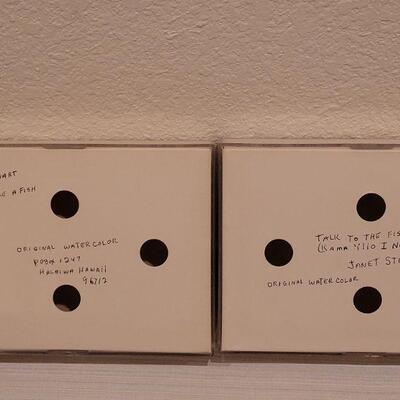 A FISH
ORIGINAL WATERCOLOR
POBOX 1247
HALEIWA HAWAII
96712
TALK TO THE FIS
(KAMA 'ILIO I N
JANET STE
ORIGINAL WATERCOLOR